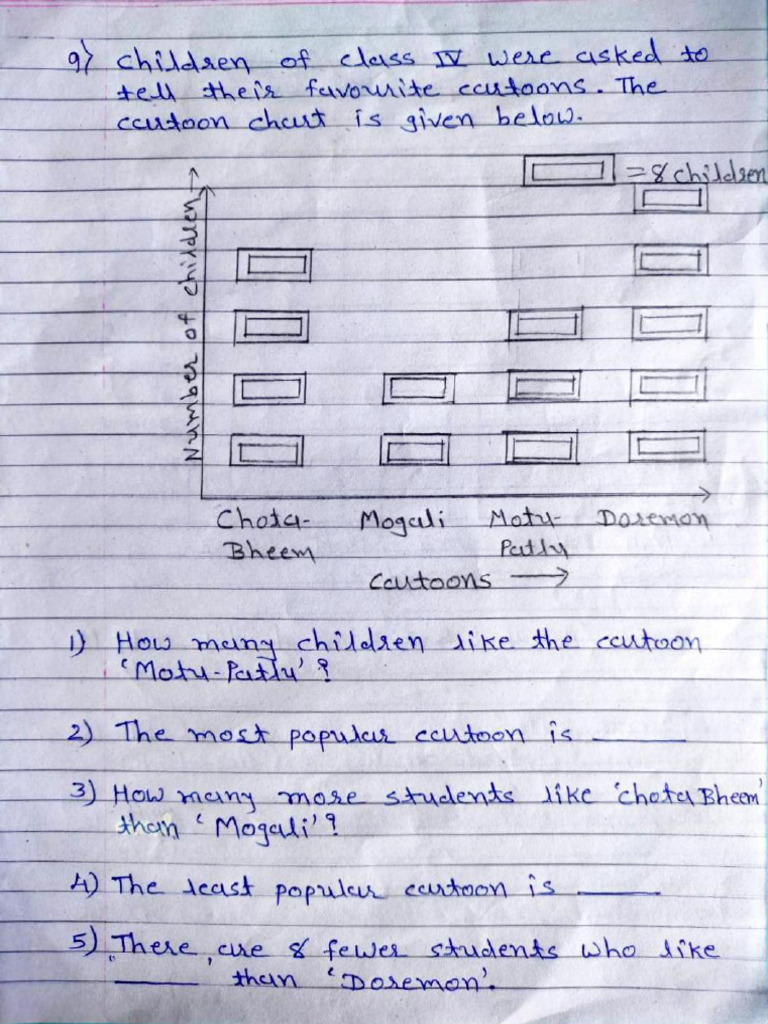 9) Children of class IV were asked to
tell their favourite cartoons. The
cartoon chart is given below.
= 8 children
Number of children →
Chota- Mogali Motu- Doremon
Bheem Patlu
Cartoons →
1) How many children like the cartoon
'Motu-Patlu'?
2) The most popular cartoon is ______
3) How many more students like 'chota Bheem'
than 'Mogali'?
4) The least popular cartoon is ______
5) There are 8 fewer students who like
______ than 'Doremon'.